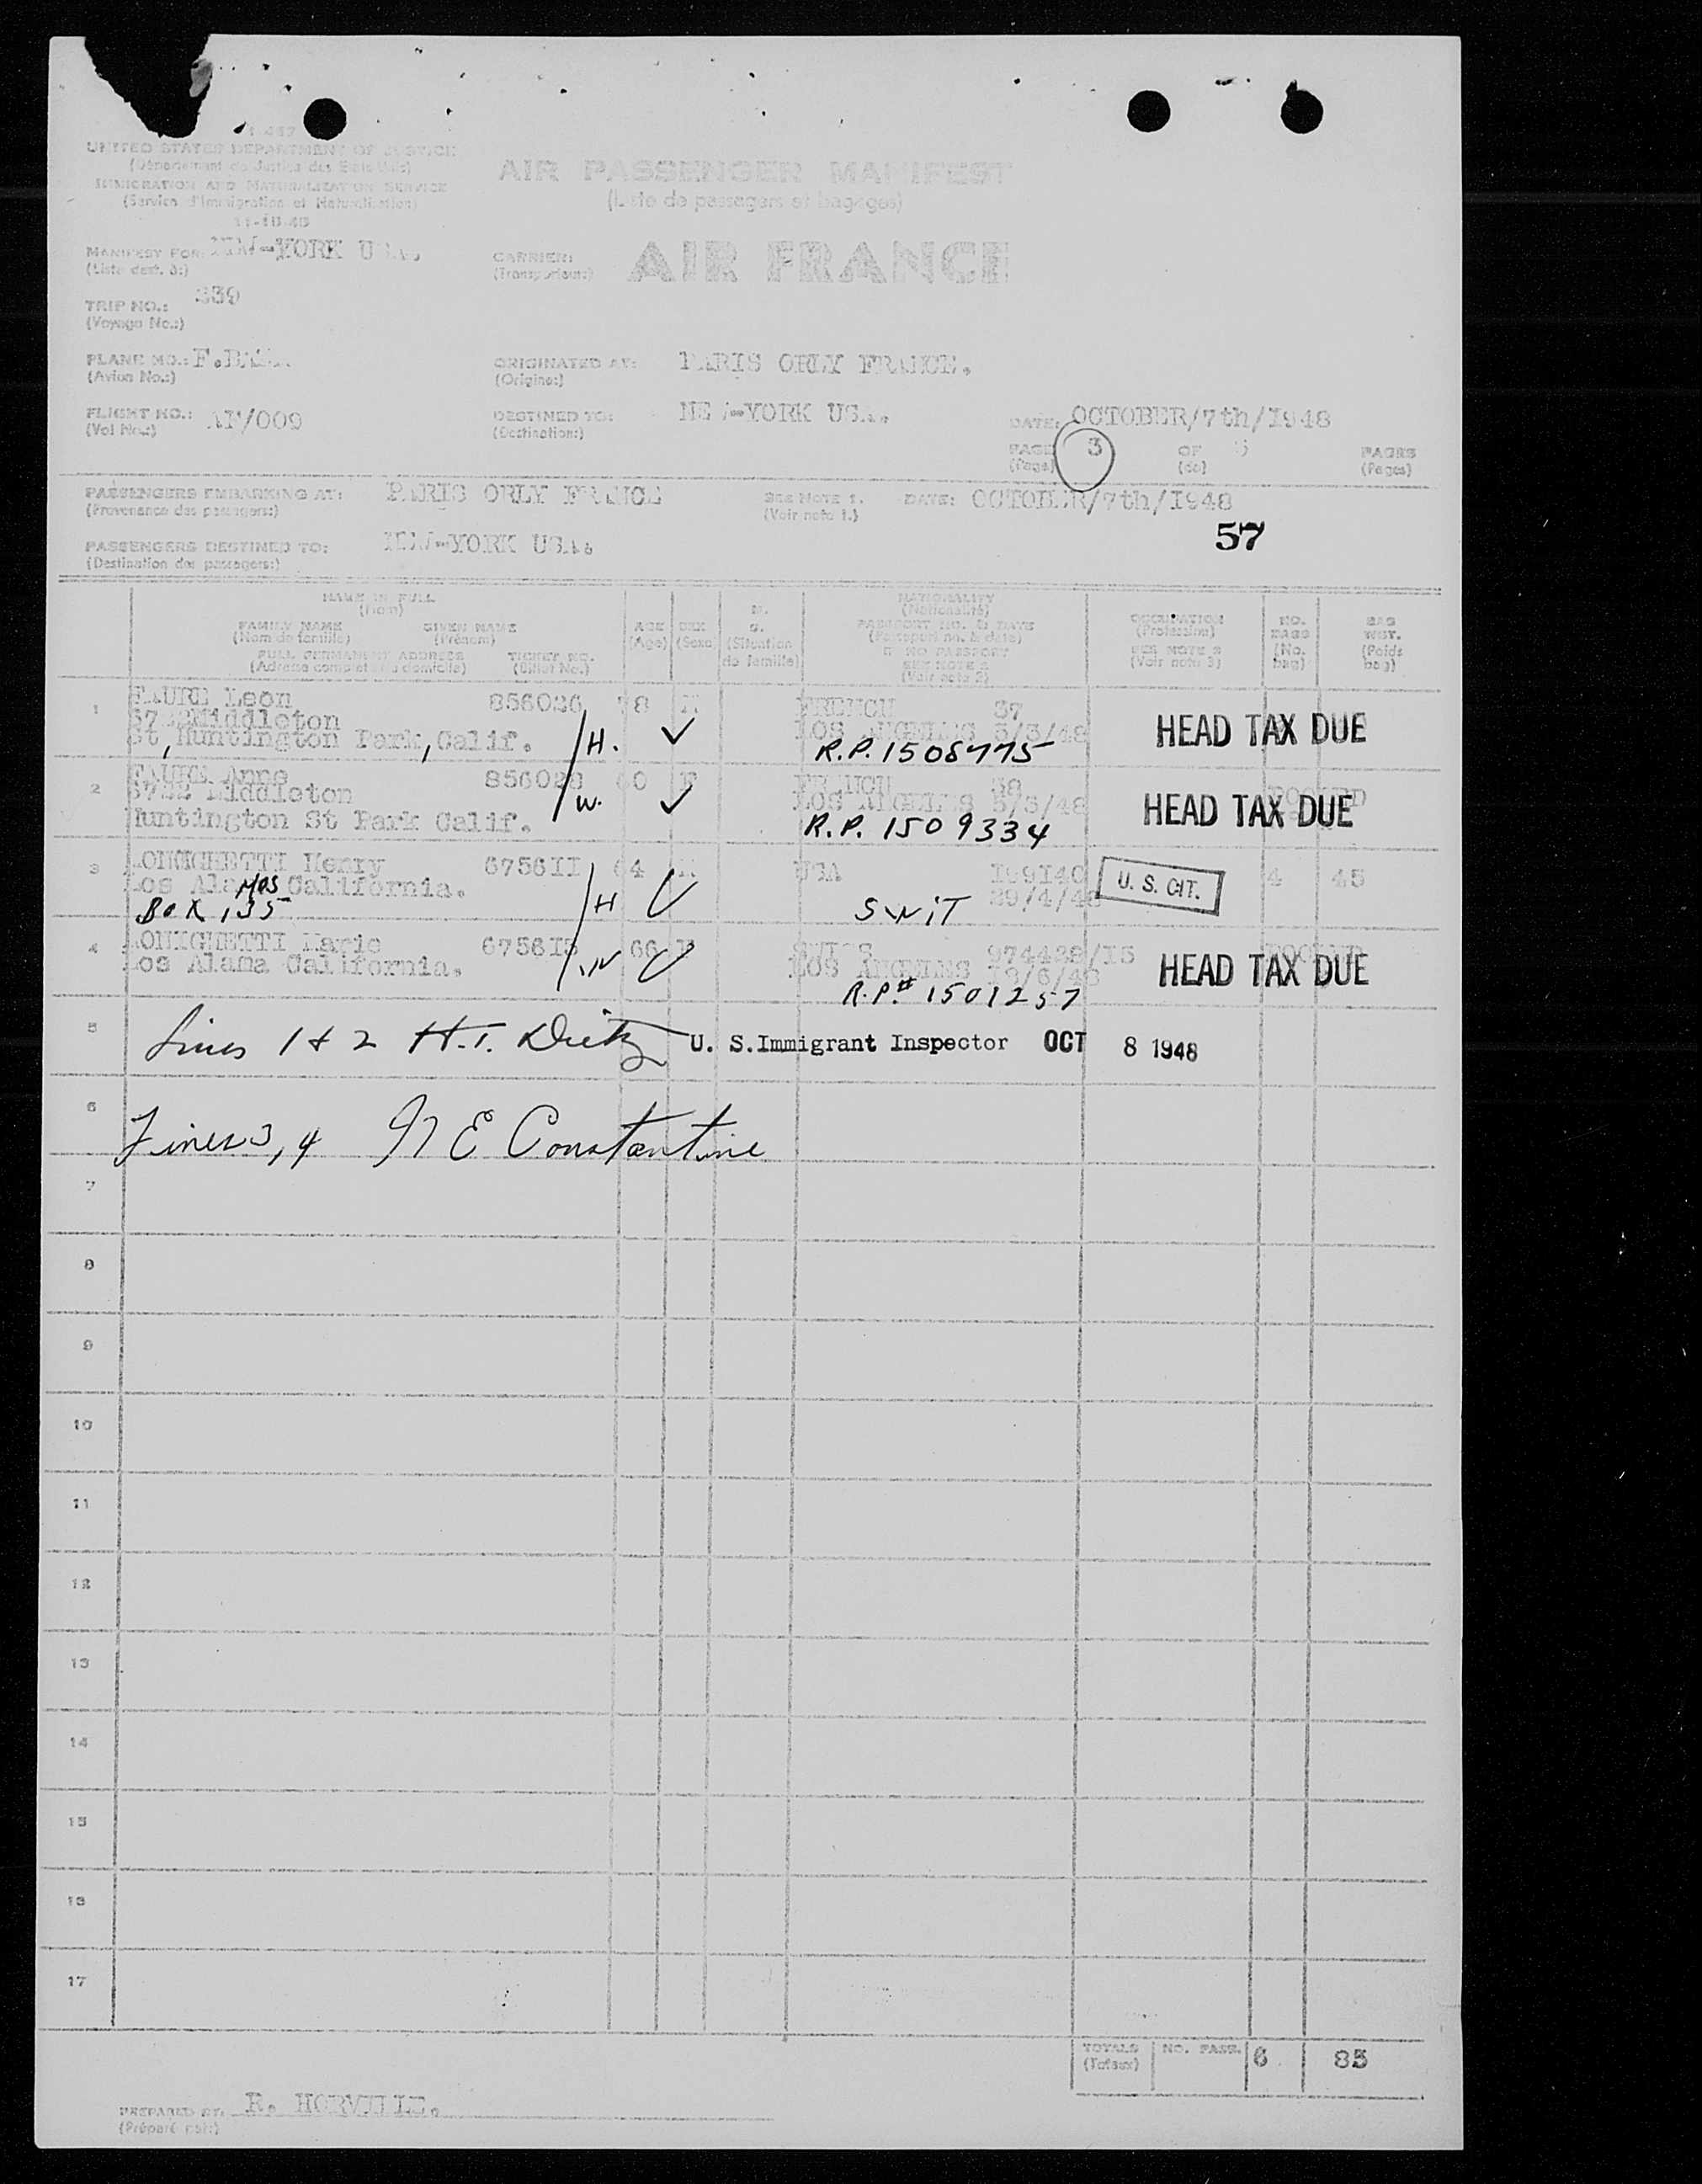 I-467
UNITED STATES DEPARTMENT OF JUSTICE
(Département de Justice des Etats-Unis)
IMMIGRATION AND NATURALIZATION SERVICE
(Service d'Immigration et Naturalisation)
AIR PASSENGER MANIFEST
(Liste de passagers et bagages)
MANIFEST FOR: NEW-YORK USA.
(Liste dest. à:)
CARRIER: AIR FRANCE
(Transporteur:)
TRIP NO.: 339
(Voyage No.:)
PLANE NO.:
(Avion No.:)
ORIGINATED AT: PARIS ORLY FRANCE.
(Origine:)
FLIGHT NO.: AF/009
(Vol No.:)
DESTINED TO: NEW-YORK USA.
(Destination:)
DATE: OCTOBER/7th/I948
PAGE 3 OF PAGES
(Page) (de) (Pages)
PASSENGERS EMBARKING AT: PARIS ORLY FRANCE
(Provenance des passagers:)
SEE NOTE 1.
(Voir note 1.)
DATE: OCTOBER/7th/I948
57
PASSENGERS DESTINED TO: NEW-YORK USA.
(Destination des passagers:)
NAME IN FULL
(Nom)
FAMILY NAME GIVEN NAME
(Nom de famille) (Prénom)
FULL PERMANENT ADDRESS TICKET NO.
(Adresse complet a domicile) (Billet No.)
AGE
(Age)
SEX
(Sexe)
M.
S.
(Situation
de famille)
NATIONALITY
(Nationalité)
PASSPORT NO. & DATE
(Passeport no. & date)
IF NO PASSPORT
SEE NOTE 2
(Voir note 2)
OCCUPATION
(Profession)
SEE NOTE 3
(Voir note 3)
NO.
BAGS
(No.
bag)
BAG
WGT.
(Poids
bag)
1 FAURE Leon 856026 78 M FRENCH 37
Middleton LOS ANGELES 5/3/48 HEAD TAX DUE
St, Huntington Park, Calif. /H. R.P. 1508775
2 FAURE Anne 60 F FRENCH 38
Middleton LOS ANGELES 5/3/48 HEAD TAX DUE
/W.
Huntington St Park Calif. R.P. 1509334
3 Henry 6756II 64 M USA I99I40 U. S. CIT. 4 45
Los Alamos California. 29/4/48
Box 135 /H SWIT
4 Marie 6756I5 66 F SWISS 974428/I5
Los Alama California. /W LOS ANGELES HEAD TAX DUE
R.P.# 1501257
5 Lines 1 & 2 H.T. Dietz U. S.Immigrant Inspector OCT 8 1948
6
Lines 3, 4 N E Constantine
7
8
9
10
11
12
13
14
15
16
17
TOTALS NO. PASS. 6 85
(Totaux)
PREPARED BY: R. HORVILLE.
(Préparé par:)